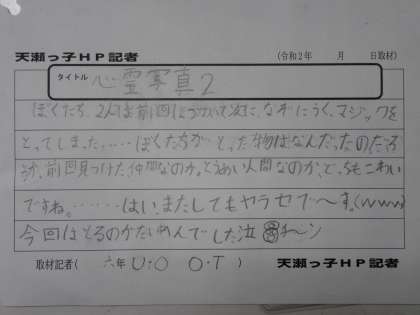 天瀬っ子HP記者 (令和2年 月 日取材)
タイトル 心霊写真2
ぼくたち、2人は前回につづいて次に、なぞにうくマジックを
とってしまった……ぼくたちがとった物はなんだったのだろ
うか、前回見つけた仲間なのか。とうめい人間なのか、どっちもこわい
ですね。……はい、またしてもヤラセで〜す。(www)
今回はとるのがたいへんでした泣 チーン
取材記者( 六年 U・O O・T ) 天瀬っ子HP記者